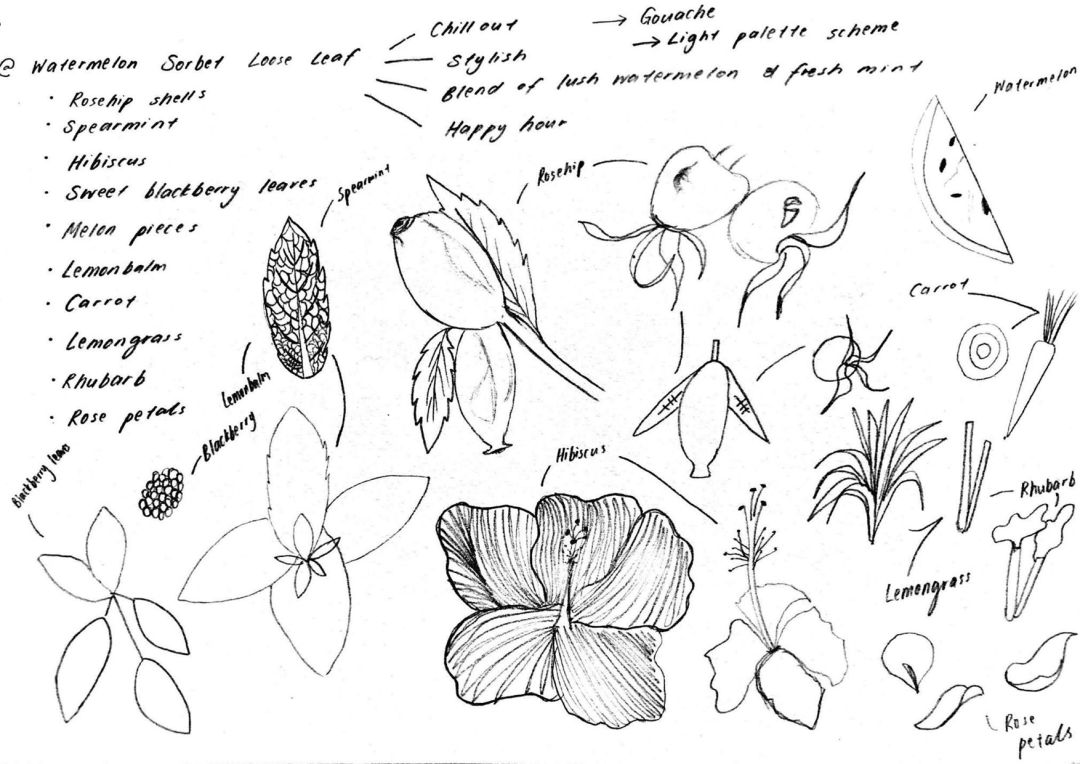 @ Watermelon Sorbet Loose Leaf
Chill out
Stylish
Blend of lush watermelon & fresh mint
Happy hour
→ Gouache
→ Light palette scheme
· Rosehip shells
· Spearmint
· Hibiscus
· Sweet blackberry leaves
· Melon pieces
· Lemonbalm
· Carrot
· Lemongrass
· Rhubarb
· Rose petals
Spearmint
Rosehip
Watermelon
Carrot
Lemonbalm
Blackberry
Blackberry leaves
Hibiscus
Rhubarb
Lemongrass
Rose
petals